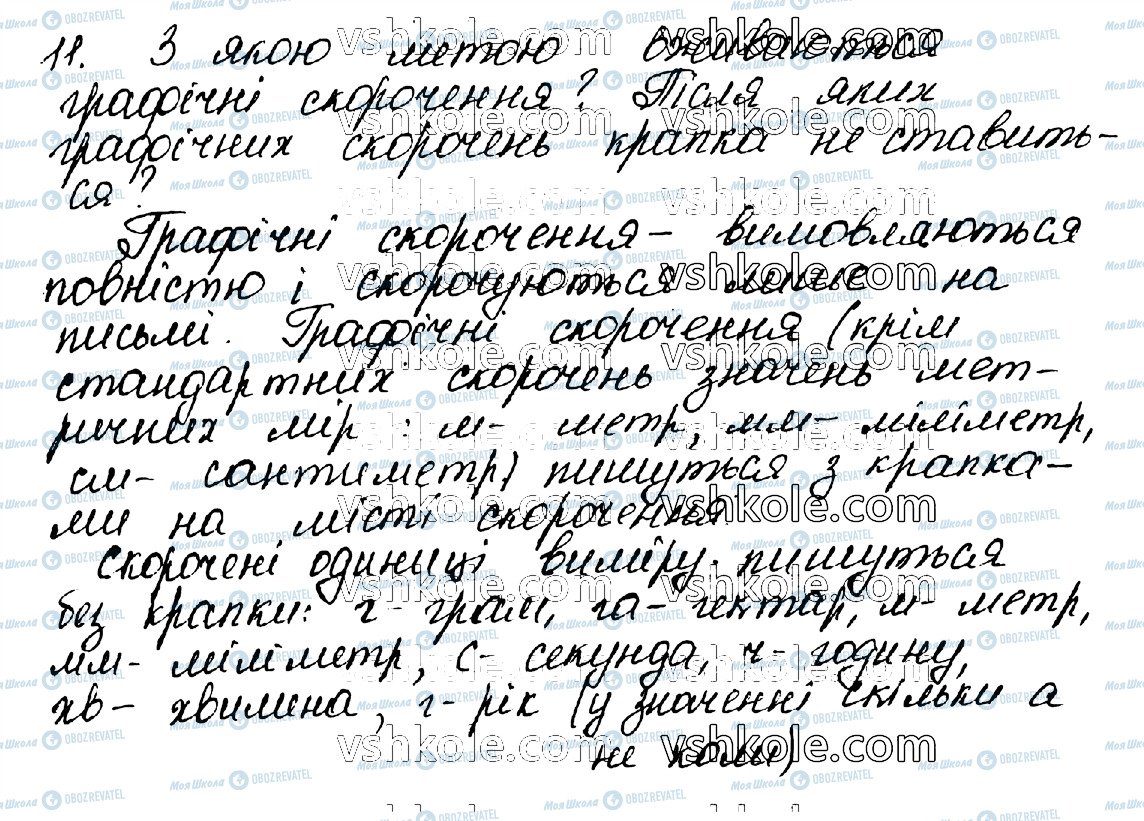 11. З якою метою вживаються
графічні скорочення? Після яких
графічних скорочень крапка не ставить-
ся?
Графічні скорочення – вимовляються
повністю і скорочуються лише на
письмі. Графічні скорочення (крім
стандартних скорочень значень мет-
ричних мір : м- метр, мм- міліметр,
см- сантиметр) пишуться з крапка-
ми на місті скорочення
Скорочені одиниці виміру пишуться
без крапки: г- грам, га- гектар, м- метр,
мм- міліметр, с- секунда, ч- годину,
хв- хвилина, г- рік (у значенні скільки а
не коли)